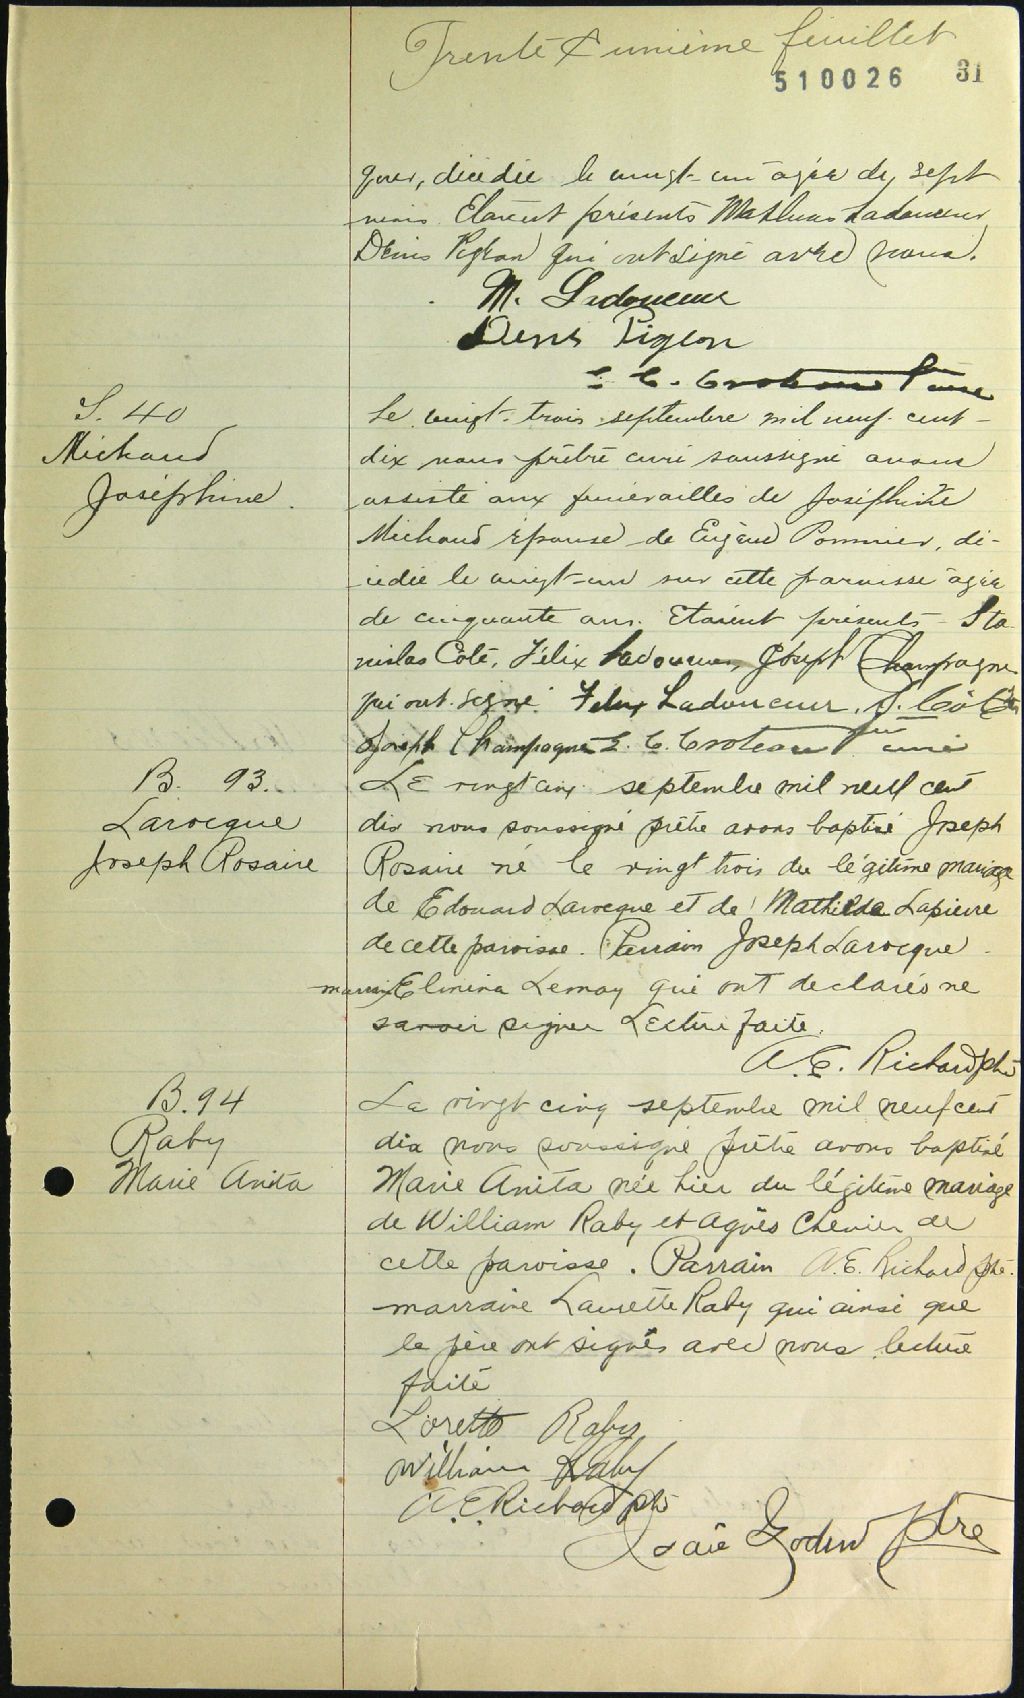 Trente & unième feuillet
510026 31
gner, décédée le vingt-un âgée de sept
mois. Etaient présents Mathias Ladouceur
Denis Pigeon qui ont signé avec nous.
M. Ladouceur
Denis Pigeon
E. C. Croteau Ptre curé
S. 40
Michaud
Joséphine
Le vingt-trois septembre mil neuf-cent-
dix nous prêtre curé soussigné avons
assisté aux funérailles de Joséphine
Michaud épouse de Eugène Pommier, dé-
cédée le vingt-un sur cette paroisse âgée
de cinquante ans. Etaient présents - Sta-
nislas Coté, Félix Ladouceur, Joseph Champagne
qui ont signé. Felix Ladouceur. S. Côté
Joseph Champagne E. C. Croteau Ptre curé
B. 93.
Larocque
Joseph Rosaire
Le vingt cinq septembre mil neuf cent
dix nous soussigné prêtre avons baptisé Joseph
Rosaire né le vingt trois du légitime mariage
de Edouard Larocque et de Mathilda Lapierre
de cette paroisse. Parrain Joseph Larocque
marraine Elmina Lemay qui ont declarés ne
savoir signer Lecture faite.
A. E. Richard ptre
B. 94
Raby
Marie Anita
Le vingt cinq septembre mil neuf cent
dix nous soussigné prêtre avons baptisé
Marie Anita née hier du légitime mariage
de William Raby et Agnès Chenier de
cette paroisse. Parrain A. E. Richard ptre.
marraine Laurette Raby qui ainsi que
le père ont signés avec nous lecture
faite
Lorette Raby
William Raby
A. E. Richard ptre
Isaïe Godin ptre